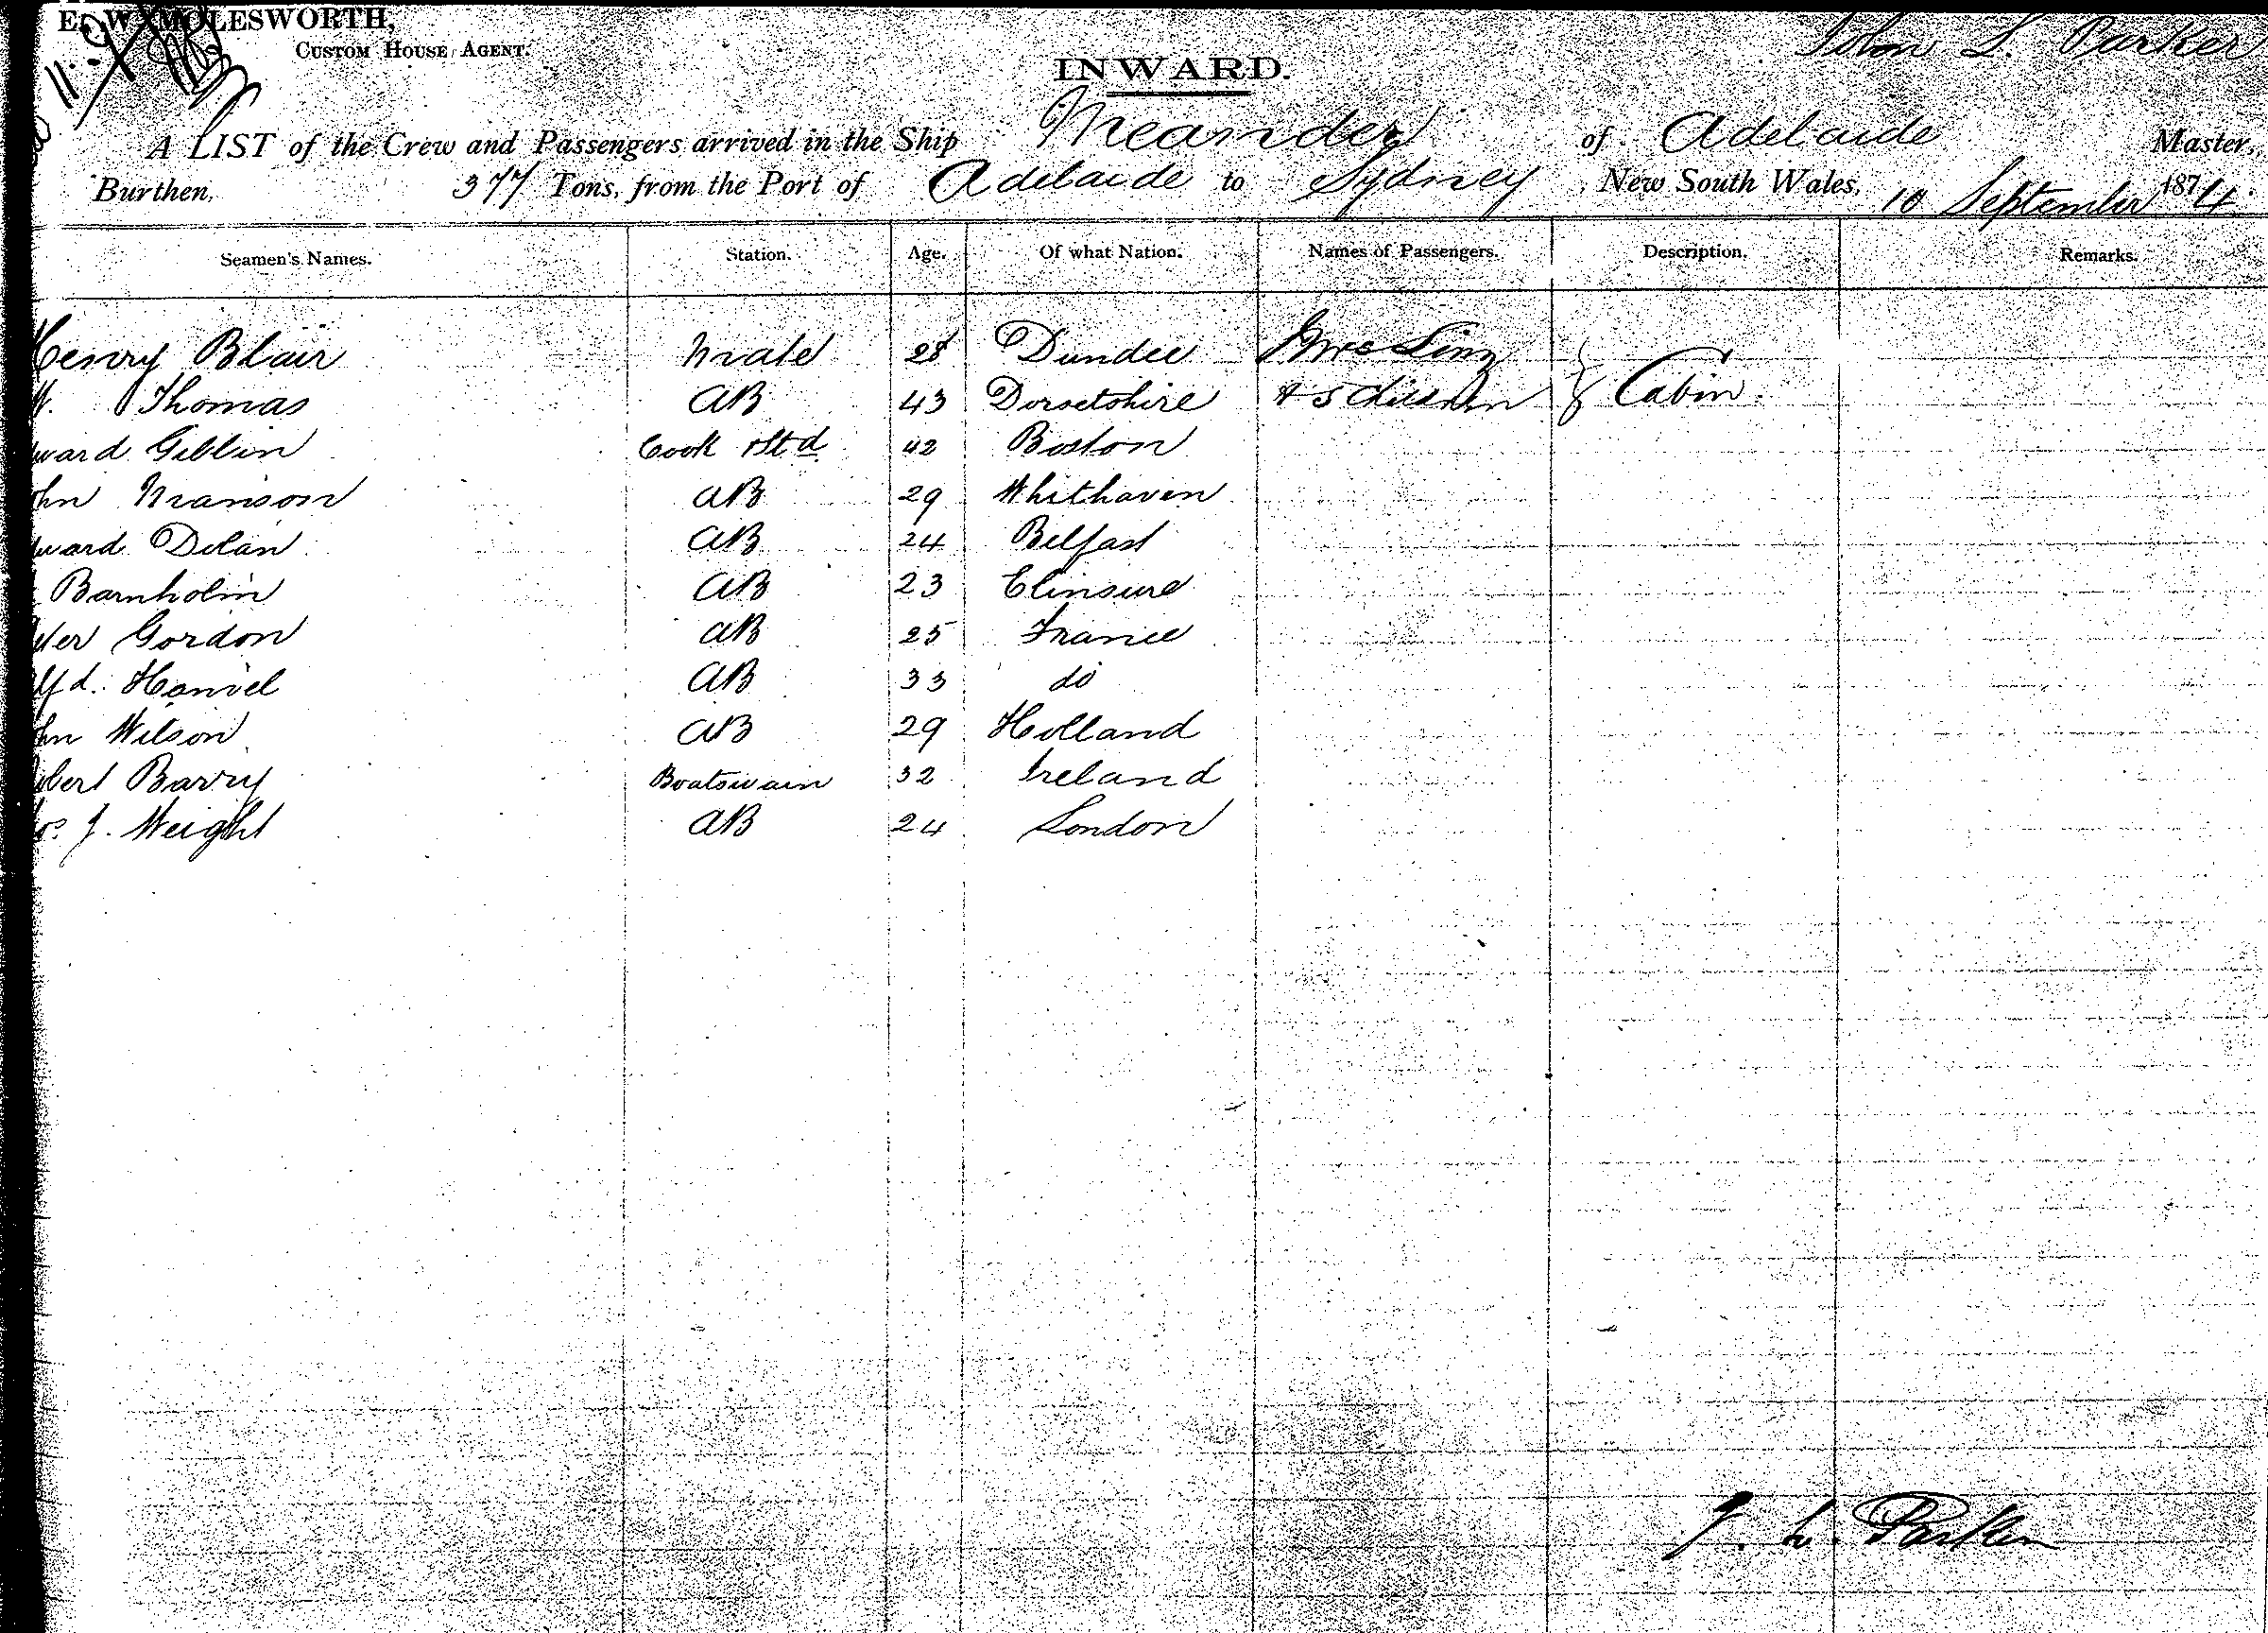 E. W. MOLESWORTH,
CUSTOM HOUSE AGENT.
INWARD.
John L. Parker
A LIST of the Crew and Passengers arrived in the Ship Meander of Adelaide Master,
Burthen, 377 Tons, from the Port of Adelaide to Sydney, New South Wales, 10 September 1874.
Seamen's Names. Station. Age. Of what Nation. Names of Passengers. Description. Remarks.
Henry Blair Mate 28 Dundee Mrs
W. Thomas AB 43 Dorsetshire & 5 Children } Cabin
ward Giblin Cook & Std 42 Boston
ohn Manson AB 29 Whithaven
ward Dolan AB 24 Belfast
Barnholm AB 23 Elinsure
ter Gordon AB 25 France
lfd. Hamel AB 33 do
ohn Wilson AB 29 Holland
obert Barry Boatswain 32 Ireland
os. J. Weight AB 24 London
J. L. Parker